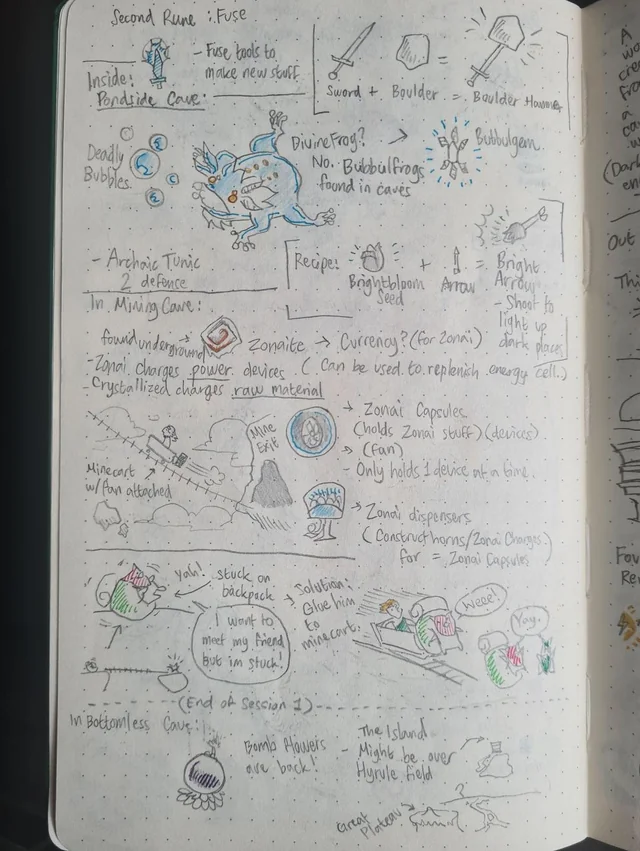 Second Rune : Fuse
- Fuse tools to
make new stuff
Sword + Boulder = Boulder Hammer
Inside:
Pondside Cave:
Deadly
Bubbles.
Divine Frog?
No. Bubbulfrogs
found in caves
Bubbulgem
- Archaic Tunic
2 defence
Recipe:
Brightbloom
Seed
+
Arrow
=
Bright
Arrow
- Shoot to
light up
dark places
In Mining Cave:
found underground
Zonaite → Currency? (for Zonai)
- Zonai charges power devices. (Can be used to replenish energy cell.)
- Crystallized charges raw material
Mine
Exit
Minecart
w/ fan attached
→ Zonai Capsules
(holds Zonai stuff) (devices)
→ (fan)
- Only holds 1 device at a time.
→ Zonai dispensers
(Construct horns/Zonai Charges)
for = Zonai Capsules
Yah!
stuck on
backpack
I want to
meet my friend
But im stuck!
→ Solution:
Glue him
to
minecart.
Weee!
Yay.
(End of Session 1)
In Bottomless Cave:
Bomb flowers
are back!
- The Island
Might be over
Hyrule field
Great
Plateau
?
A
(Dar
Out
Thi